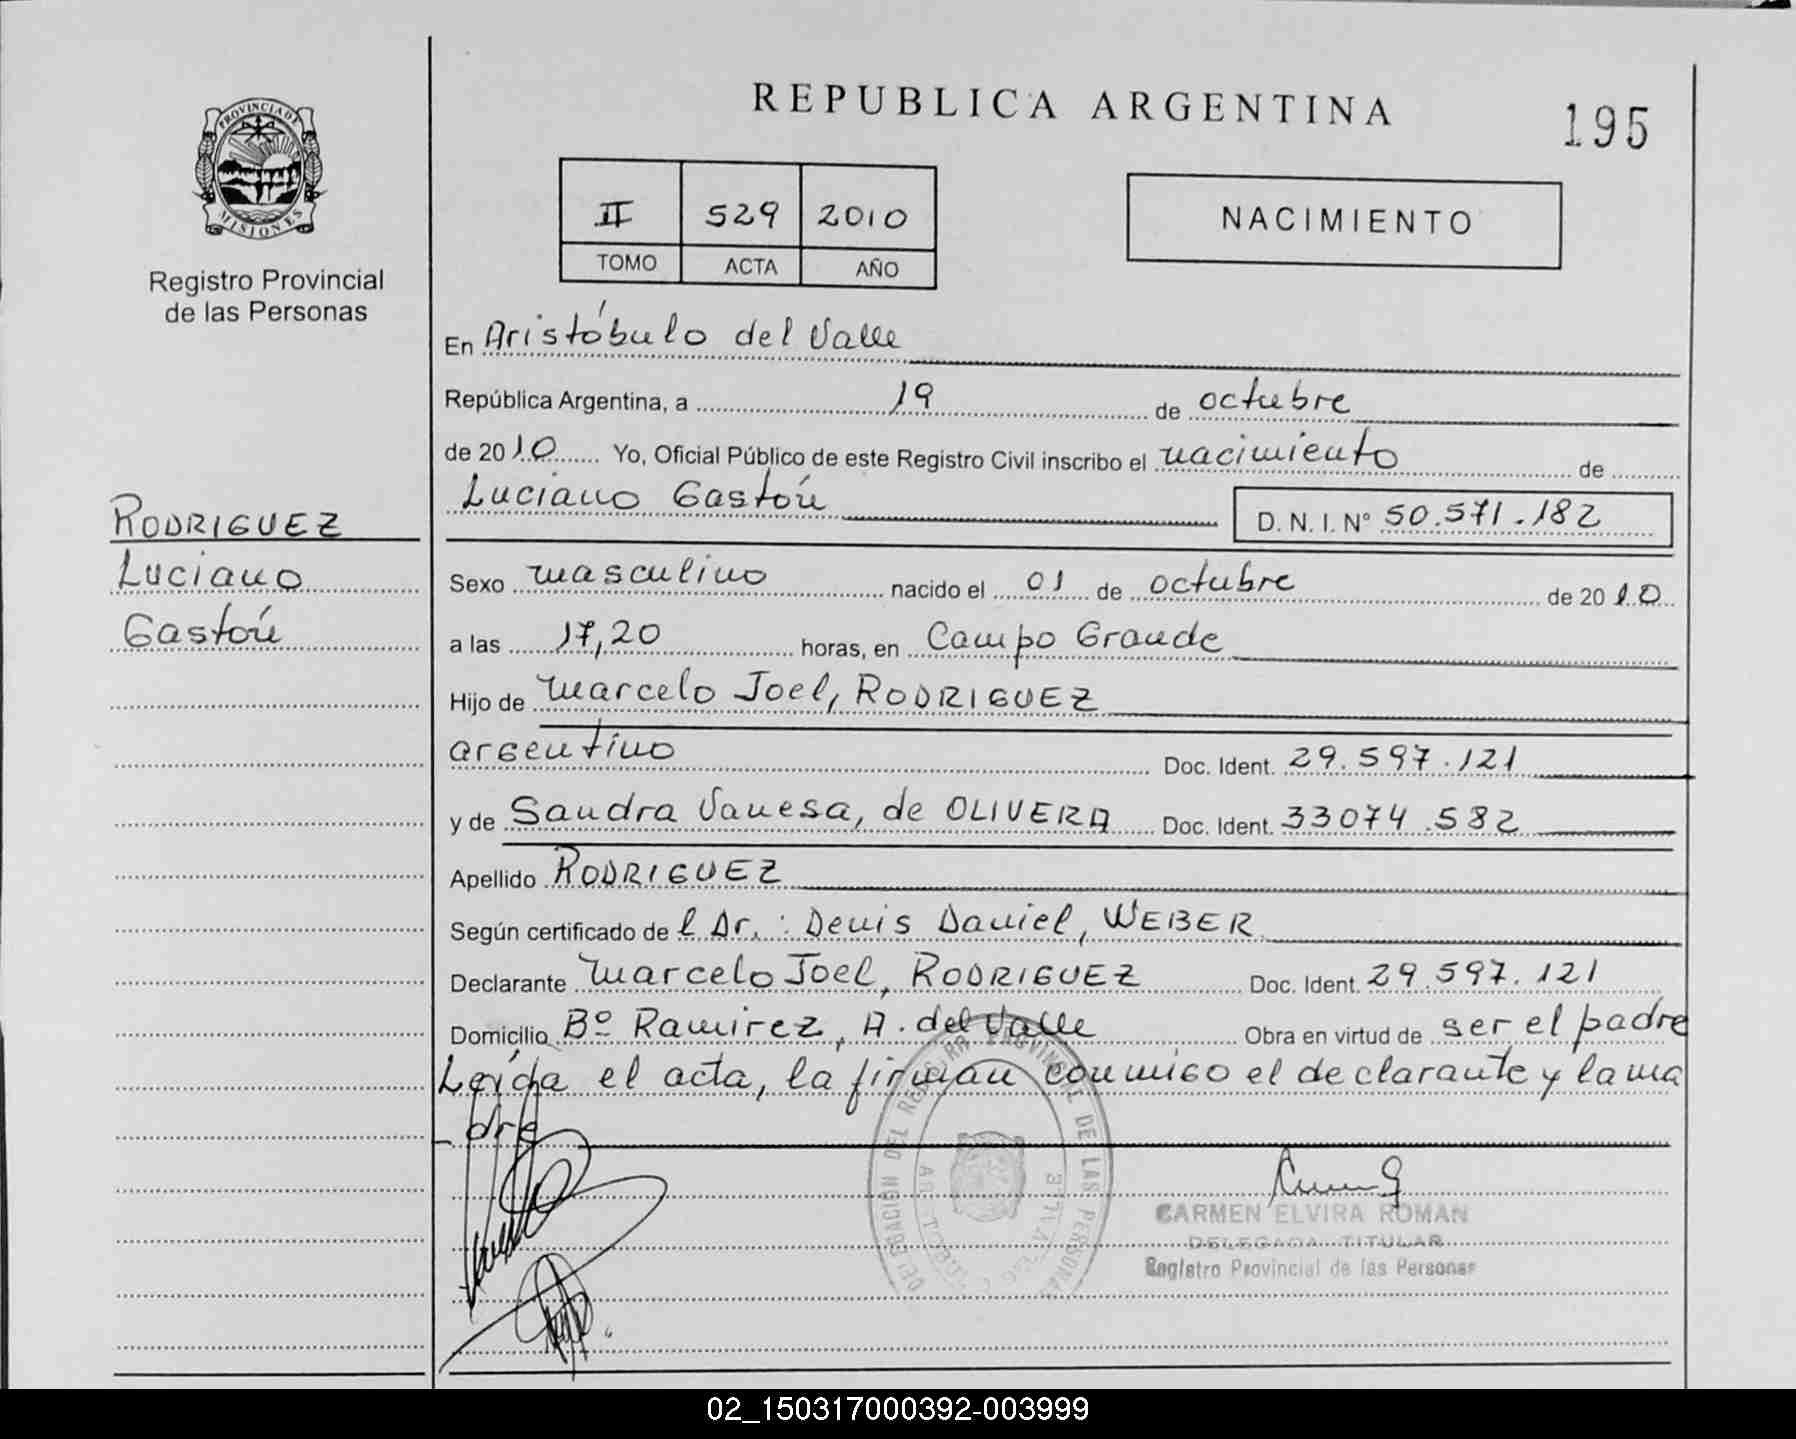 REPUBLICA ARGENTINA
195
PROVINCIA DE
MISIONES
Registro Provincial
de las Personas
II 529 2010
TOMO ACTA AÑO
NACIMIENTO
En Aristóbulo del Valle
República Argentina, a 19 de octubre
de 2010 Yo, Oficial Público de este Registro Civil inscribo el nacimiento de
Luciano Gastón D. N. I. N° 50.571.182
RODRIGUEZ
Luciano
Gastón
Sexo masculino nacido el 01 de octubre de 2010
a las 17,20 horas, en Campo Grande
Hijo de Marcelo Joel, RODRIGUEZ
argentino Doc. Ident. 29.597.121
y de Sandra Vanesa, de OLIVERA Doc. Ident. 33074.582
Apellido RODRIGUEZ
Según certificado de l Dr.: Denis Daniel, WEBER
Declarante Marcelo Joel, RODRIGUEZ Doc. Ident. 29.597.121
Domicilio Bº Ramirez, A. del Valle Obra en virtud de ser el padre
Leída el acta, la firman conmigo el declarante y la ma
dre
DELEGACION DEL REGISTRO PROVINCIAL DE LAS PERSONAS
CARMEN ELVIRA ROMAN
DELEGADA TITULAR
Registro Provincial de las Personas
02_150317000392-003999